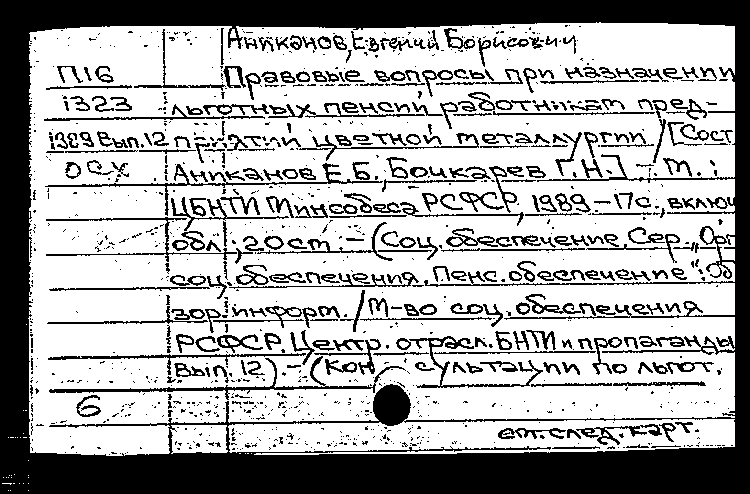 Аниканов, Евгений Борисович
П16 Правовые вопросы при назначении
i323 льготных пенсий работникам пред-
i389 Вып.12 приятий цветной металлургии / [Сост
осх Аниканов Е.Б., Бочкарев Г.Н.] - М.:
ЦБНТИ Минсобеса РСФСР, 1989.-17с., включ
обл.; 20 ст. - (Соц. обеспечение. Сер. „Орг
соц. обеспечения. Пенс. обеспечение": Об
зор. информ. / М-во соц. обеспечения
РСФСР. Центр. отрасл. БНТИ и пропаганды
Вып. 12). - (Кон сультации по льгот.
6
см. след. карт.